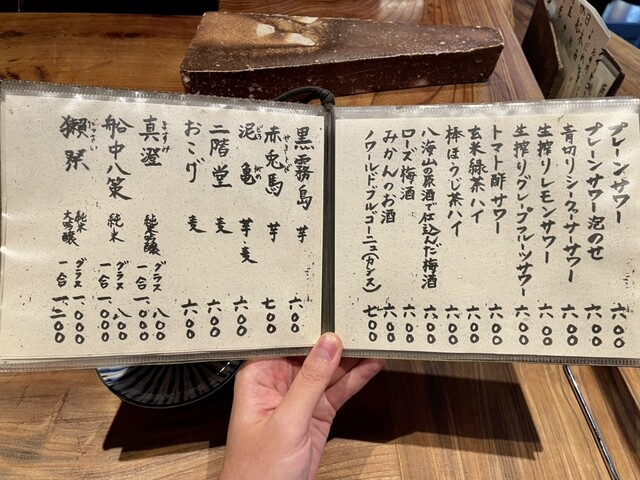 プレーンサワー 六〇〇
プレーンサワー泡のせ 六〇〇
青切りシークァーサーサワー 六〇〇
生搾りレモンサワー 六〇〇
生搾りグレープフルーツサワー 六〇〇
トマト酢サワー 六〇〇
玄米緑茶ハイ 六〇〇
棒ほうじ茶ハイ 六〇〇
八海山の原酒で仕込んだ梅酒 六〇〇
ローズ梅酒 六〇〇
みかんのお酒 六〇〇
ノワール・ド・ブルゴーニュ(カシス) 七〇〇
黒霧島 芋 六〇〇
赤兎馬 せきとば 芋 七〇〇
泥亀 どろがめ 芋・麦 六〇〇
二階堂 麦 六〇〇
おこげ 麦 六〇〇
真澄 ますみ 純米吟醸 グラス 八〇〇
一合 一、〇〇〇
船中八策 純米 グラス 八〇〇
一合 一、〇〇〇
獺祭 だっさい 純米大吟醸 グラス 一、〇〇〇
一合 一、二〇〇